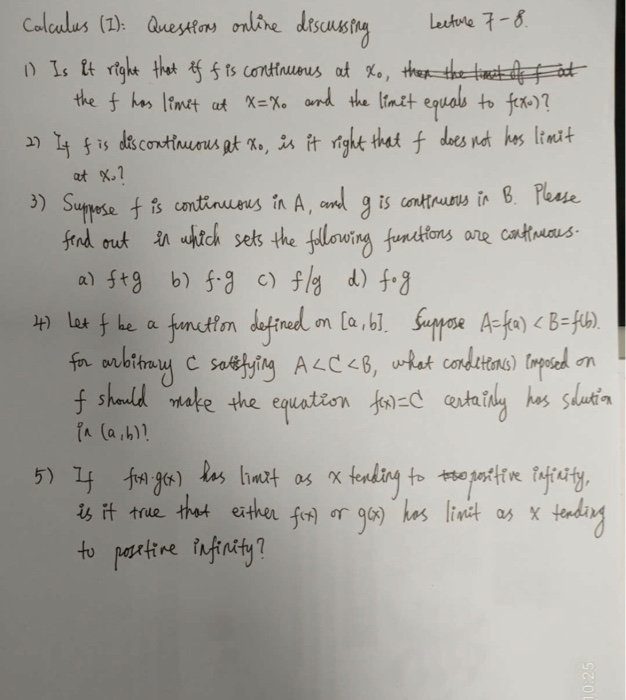 Calculus (I): Questions online discussing Lecture 7-8.
1) Is it right that if f is continuous at x₀, then the limit of f at
the f has limit at x=x₀ and the limit equals to f(x₀)?
2) If f is discontinuous at x₀, is it right that f does not has limit
at x₀?
3) Suppose f is continuous in A, and g is continuous in B. Please
find out in which sets the following functions are continuous.
a) f+g b) f·g c) f/g d) f∘g
4) Let f be a function defined on [a,b]. Suppose A=f(a) < B=f(b).
for arbitrary C satisfying A<C<B, what condition(s) imposed on
f should make the equation f(x)=C certainly has solution
in (a,b)?
5) If f(x)·g(x) has limit as x tending to positive infinity,
is it true that either f(x) or g(x) has limit as x tending
to positive infinity?
10:25